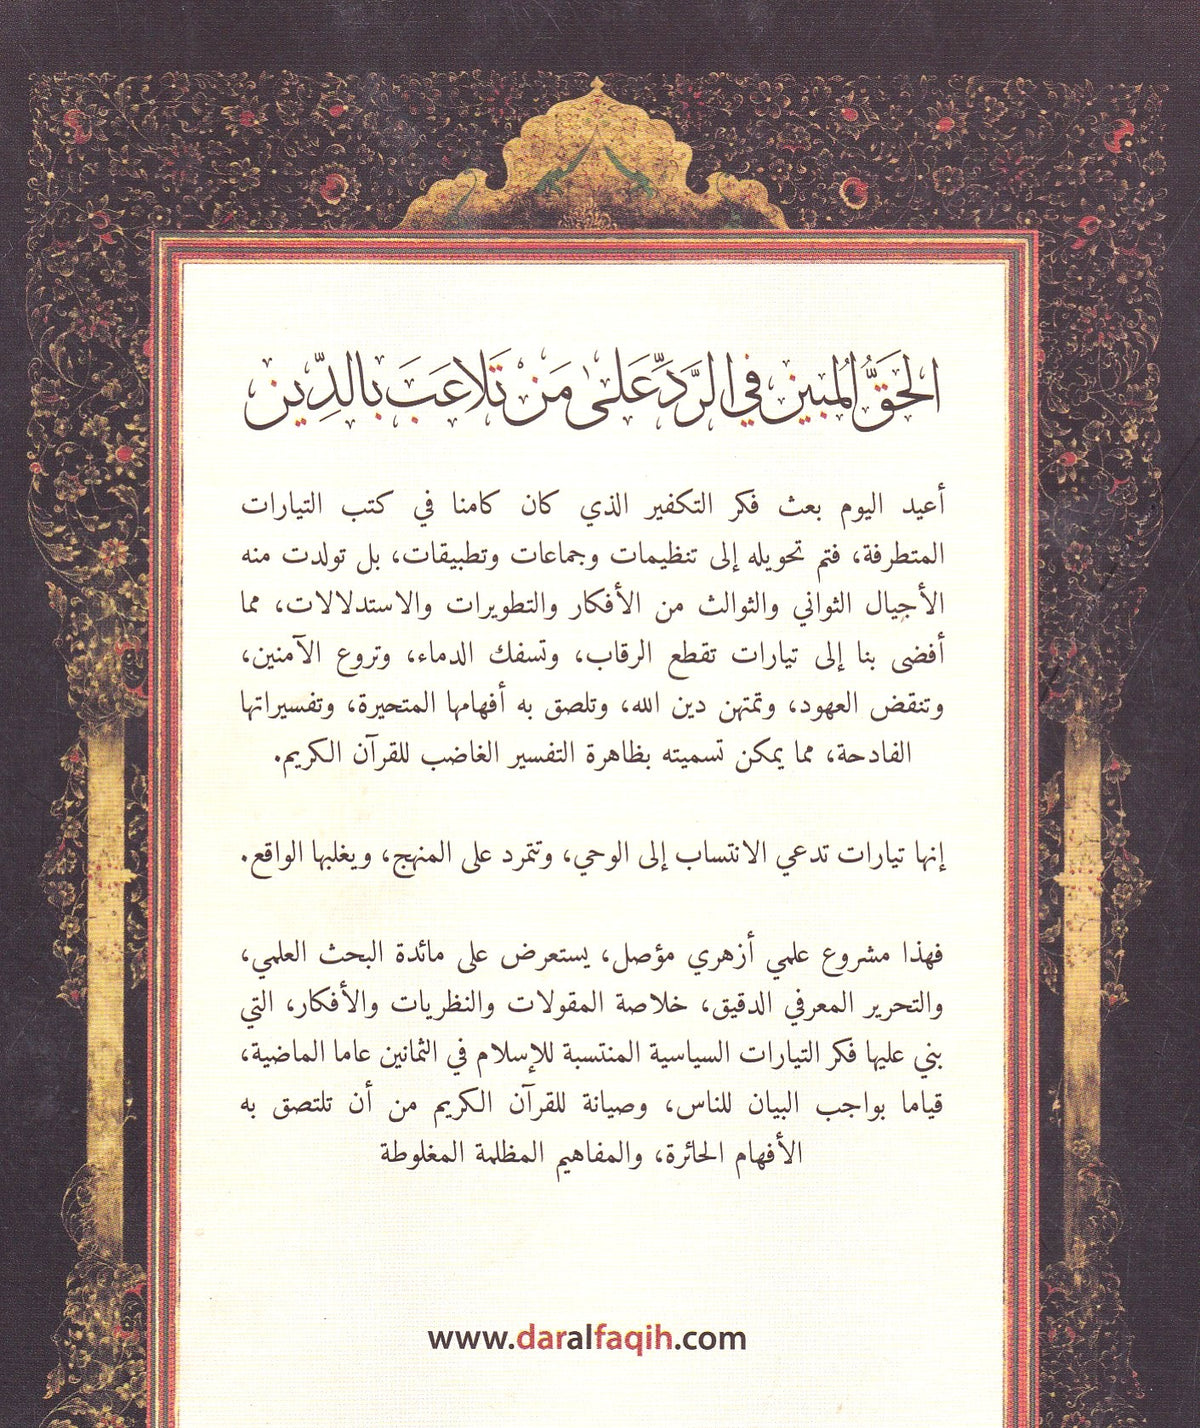 الحَقُّ المُبين في الرَّدِّ عَلىٰ مَنْ تَلاعَبَ بالدِّين
أعيد اليوم بعث فكر التكفير الذي كان كامنا في كتب التيارات
المتطرفة، فتم تحويله إلى تنظيمات وجماعات وتطبيقات، بل تولدت منه
الأجيال الثواني والثوالث من الأفكار والتطويرات والاستدلالات، مما
أفضى بنا إلى تيارات تقطع الرقاب، وتسفك الدماء، وتروع الآمنين،
وتنقض العهود، وتمتهن دين الله، وتلصق به أفهامها المتحيرة، وتفسيراتها
الفادحة، مما يمكن تسميته بظاهرة التفسير الغاضب للقرآن الكريم.
إنها تيارات تدعي الانتساب إلى الوحي، وتتمرد على المنهج، ويغلبها الواقع.
فهذا مشروع علمي أزهري مؤصل، يستعرض على مائدة البحث العلمي،
والتحرير المعرفي الدقيق، خلاصة المقولات والنظريات والأفكار، التي
بني عليها فكر التيارات السياسية المنتسبة للإسلام في الثمانين عاما الماضية،
قياما بواجب البيان للناس، وصيانة للقرآن الكريم من أن تلتصق به
الأفهام الحائرة، والمفاهيم المظلمة المغلوطة
www.daralfaqih.com